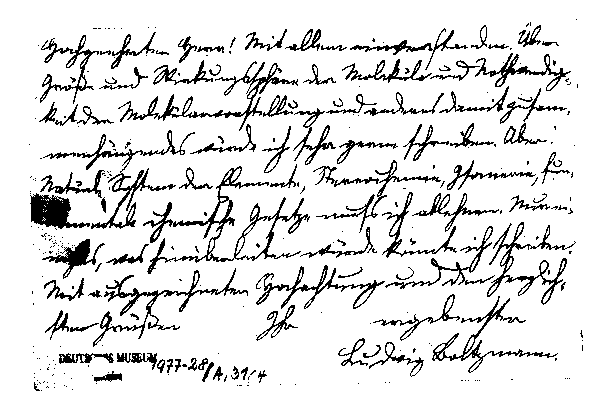 Hochgeehrter Herr! Mit allem einverstanden. Über
Größe und Wirkungssphäre der Moleküle und Nothwendig-
keit der Molekularvorstellung und anderes damit zusam-
menhängendes würde ich sehr gerne schreiben. Aber
System der Elemente, Stereochemie, Isomerie, fun-
damentale chemische Gesetze muß ich ablehnen. Nur ei-
niges, was hinüberleiten würde könnte ich schreiben.
Mit ausgezeichneter Hochachtung und den herzlich-
sten Grüßen Ihr ergebenster
Ludwig Boltzmann.
DEUTSCHES MUSEUM 1977-28/A,31/4